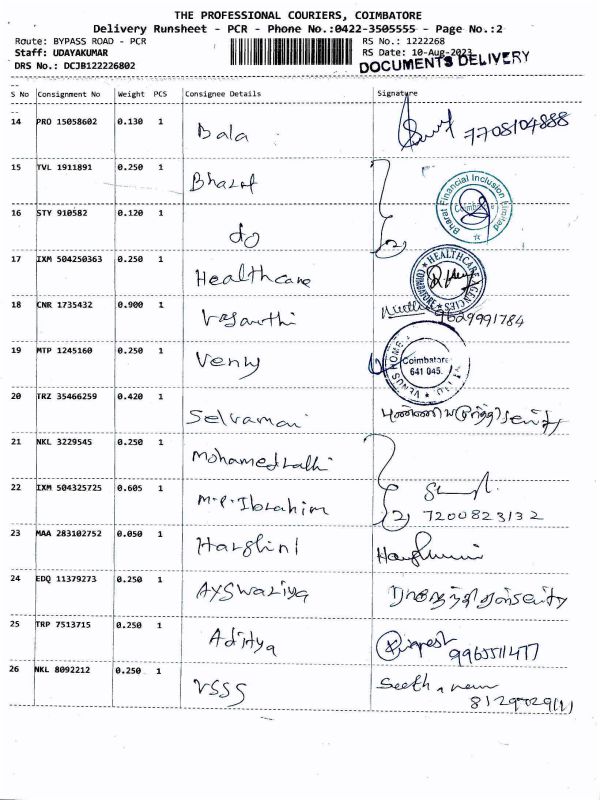 THE PROFESSIONAL COURIERS, COIMBATORE
Delivery Runsheet - PCR - Phone No.:0422-3505555 - Page No.:2
Route: BYPASS ROAD - PCR RS No.: 1222268
Staff: UDAYAKUMAR RS Date: 10-Aug-2023
DRS No.: DCJB122226802 DOCUMENTS DELIVERY
S No Consignment No Weight PCS Consignee Details Signature
14 PRO 15058602 0.130 1 Bala 7708104888
15 TVL 1911891 0.250 1 Bharat
Bharat Financial Inclusion Limited
16 STY 910582 0.120 1 do (2)
17 IXM 504250363 0.250 1 Healthcare
HEALTHCARE AGENCIES COIMBATORE
18 CNR 1735432 0.900 1 Vasanthi 9629991784
19 MTP 1245160 0.250 1 Venus
VENUS HOME
Coimbatore
641 045.
20 TRZ 35466259 0.420 1 Selvamani
21 NKL 3229545 0.250 1
22 IXM 504325725 0.605 1 M.P. Ibrahim (2) 7200823132
23 MAA 283102752 0.050 1 Harshini
24 EDQ 11379273 0.250 1 Ayswariya
25 TRP 7513715 0.250 1 Aditya
26 NKL 8092212 0.250 1 VSSS